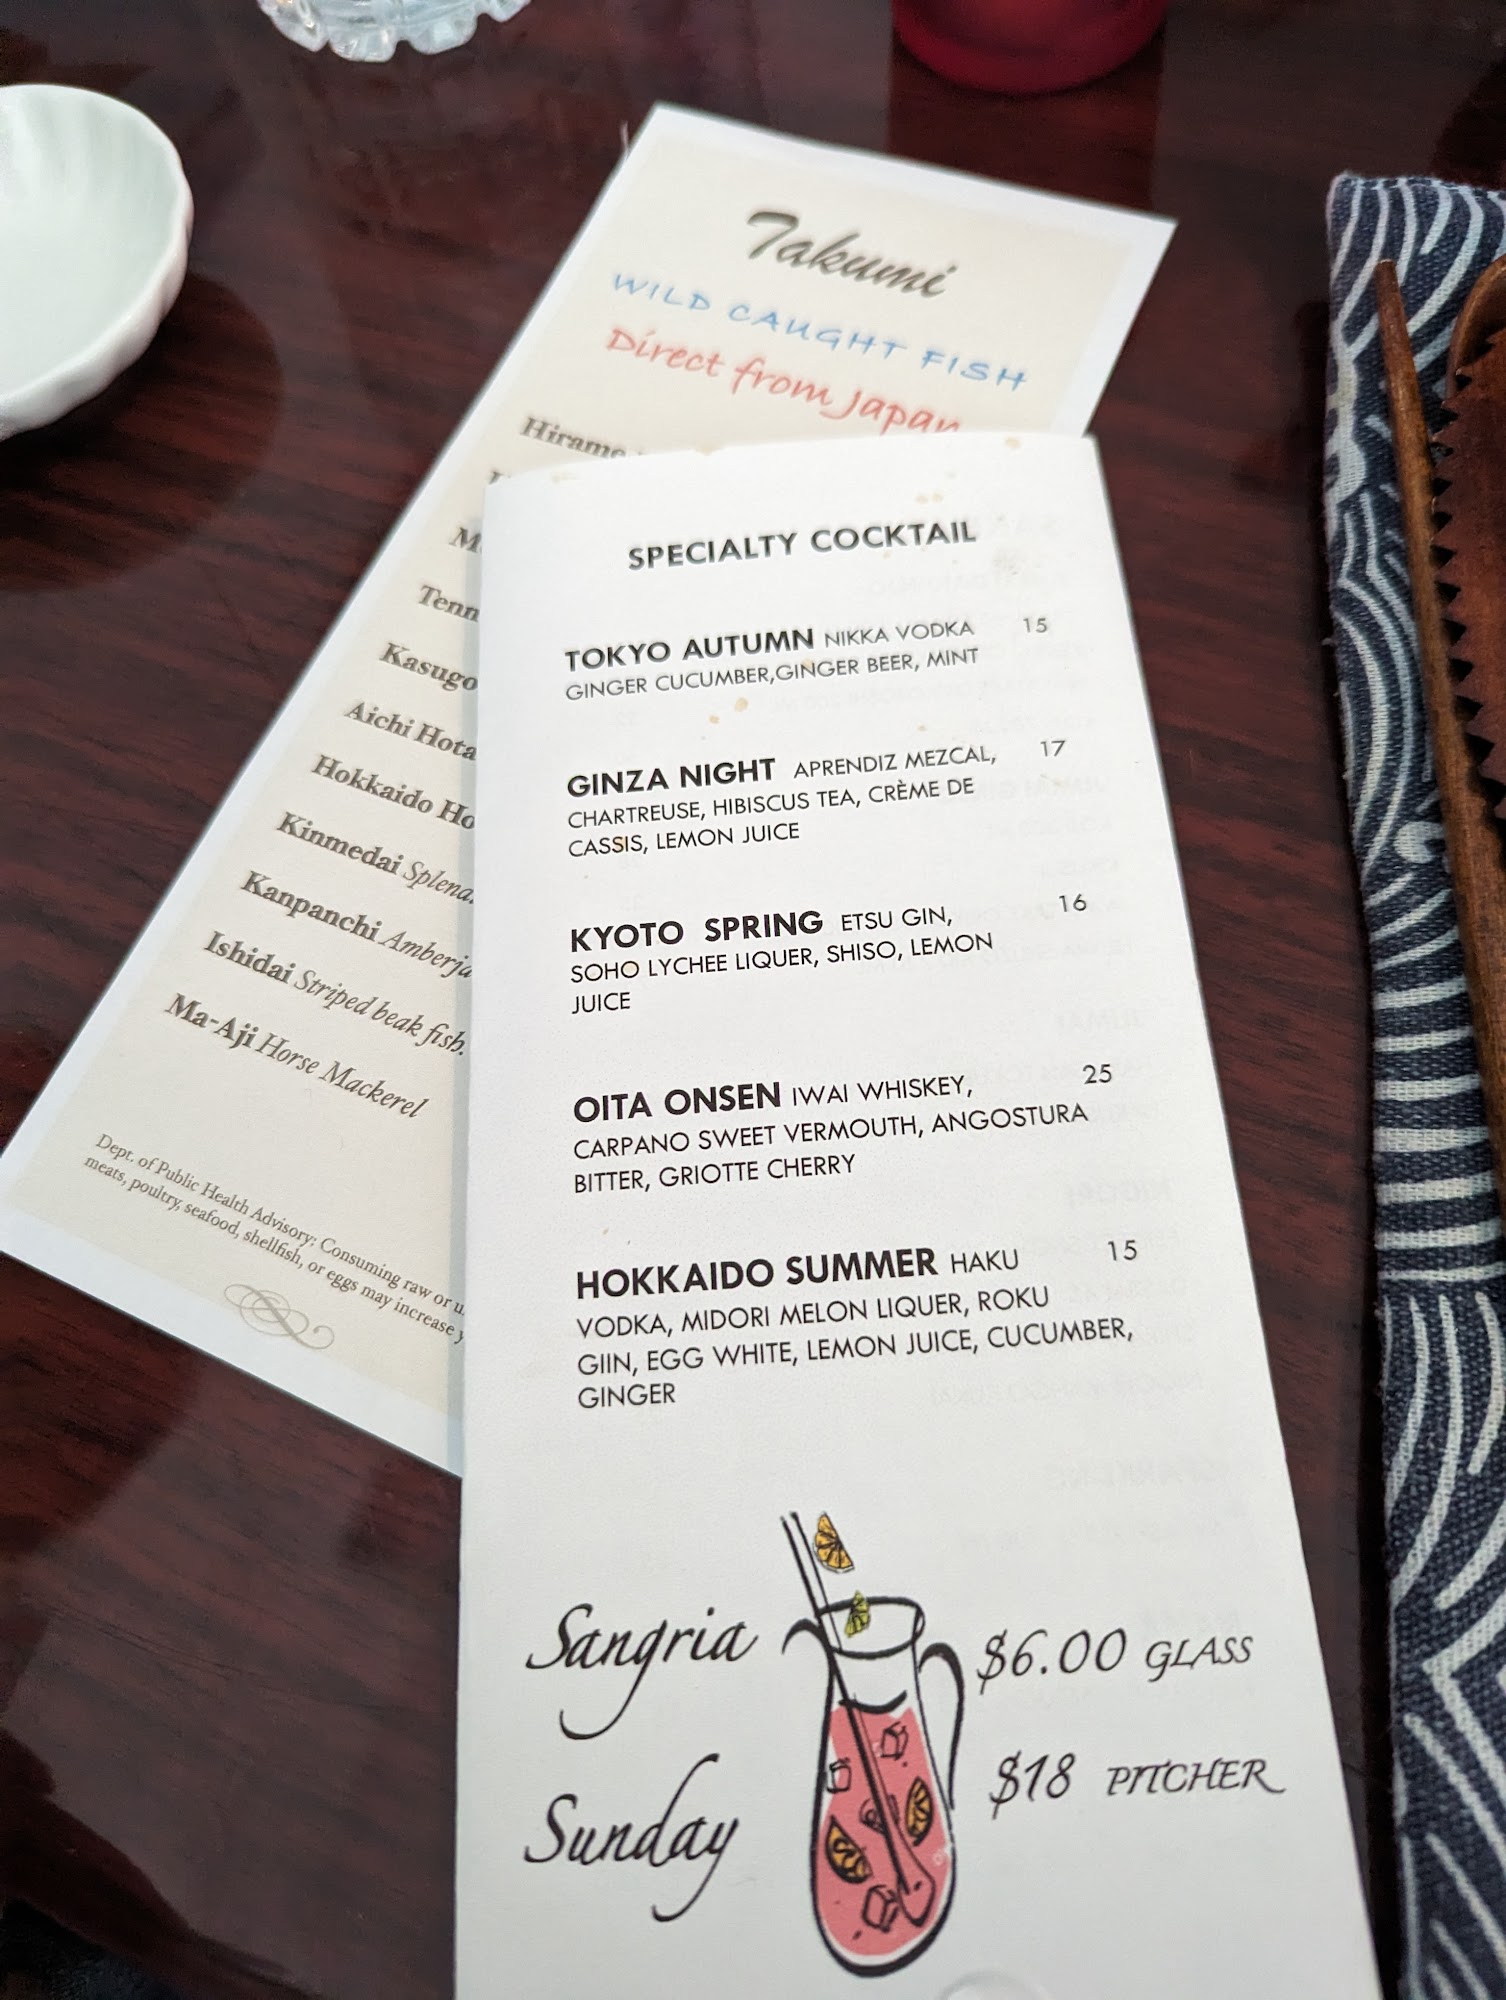 Takumi
WILD CAUGHT FISH
Direct from Japan
Hirame
Tenn
Kasugo
Aichi Hota
Hokkaido Ho
Kinmedai Splend
Kanpanchi Amberja
Ishidai Striped beak fish.
Ma-Aji Horse Mackerel
Dept. of Public Health Advisory: Consuming raw or u
meats, poultry, seafood, shellfish, or eggs may increase y
SPECIALTY COCKTAIL
TOKYO AUTUMN NIKKA VODKA 15
GINGER CUCUMBER,GINGER BEER, MINT
GINZA NIGHT APRENDIZ MEZCAL, 17
CHARTREUSE, HIBISCUS TEA, CRÈME DE
CASSIS, LEMON JUICE
KYOTO SPRING ETSU GIN, 16
SOHO LYCHEE LIQUER, SHISO, LEMON
JUICE
OITA ONSEN IWAI WHISKEY, 25
CARPANO SWEET VERMOUTH, ANGOSTURA
BITTER, GRIOTTE CHERRY
HOKKAIDO SUMMER HAKU 15
VODKA, MIDORI MELON LIQUER, ROKU
GIIN, EGG WHITE, LEMON JUICE, CUCUMBER,
GINGER
Sangria $6.00 GLASS
Sunday $18 PITCHER